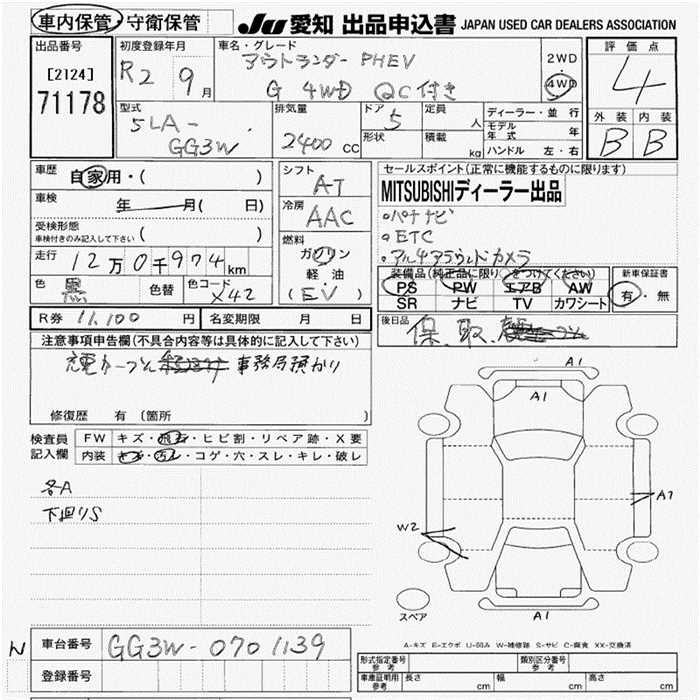 車内保管・守衛保管
JU 愛知 出品申込書 JAPAN USED CAR DEALERS ASSOCIATION
出品番号
[2124]
71178
初度登録年月
R2 9月
車名・グレード
アウトランダー PHEV
G 4WD QC付き
2WD
4WD
評価点
4
外装 内装
B B
型式
5LA-
GG3W
排気量
2400 CC
ドア 5
形状
定員 人
積載 kg
ディーラー・並行
モデル年式 年
ハンドル 左・右
車歴
自家用・( )
車検
年 月( 日)
受検形態
車検付きのみ記入して下さい ( )
走行 12万0千974km
色 黒 色替 色コード X42
シフト
AT
冷房
AAC
燃料
ガソリン
軽油・
(EV)
セールスポイント(正常に機能するものに限ります)
MITSUBISHIディーラー出品
・パナナビ
・ETC
・アルチアラウンドカメラ
装備品(純正品に限り○をつけてください)
PS PW エアB AW
SR ナビ TV カワシート
新車保証書
有・無
R券 11,100 円 名変期限 月 日
後日品
保、取、
注意事項申告欄(不具合内容等は具体的に記入して下さい)
充電ケーブル 事務局預かり
修復歴 有 (箇所 )
検査員記入欄
FW キズ・飛石・ヒビ割・リペア跡・X要
内装 キズ・汚レ・コゲ・穴・スレ・キレ・破レ
各A
下廻りS
A1
A1
A7
W2
A1
スペア
A-キズ E-エクボ U-凹み W-補修跡 S-サビ C-腐食 XX-交換済
N 車台番号 GG3W-0701139
登録番号
形式指定番号 参考
類別区分番号 参考
車庫証明用 参考 長さ cm 幅 cm 高さ cm